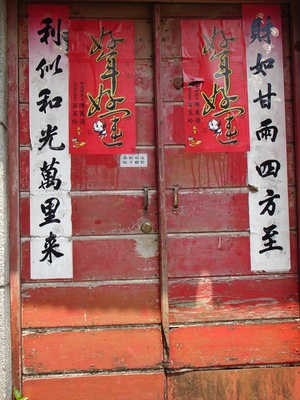 財如甘雨四方至
利似和光萬里来
好年好運
好年好運